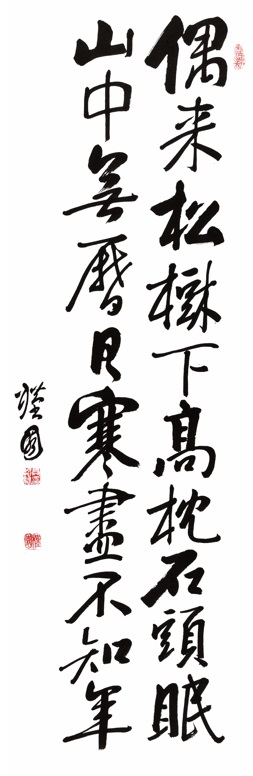 偶来松樹下高枕石頭眠
山中無暦日寒盡不知年